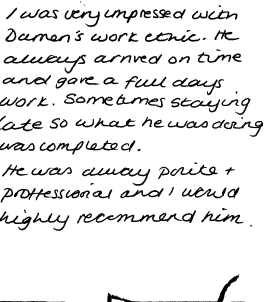 I was very impressed with
Damen's work ethic. He
always arrived on time
and gave a full days
work. Sometimes staying
late so what he was doing
was completed.
He was alway polite +
proffessional and I would
highly recommend him.